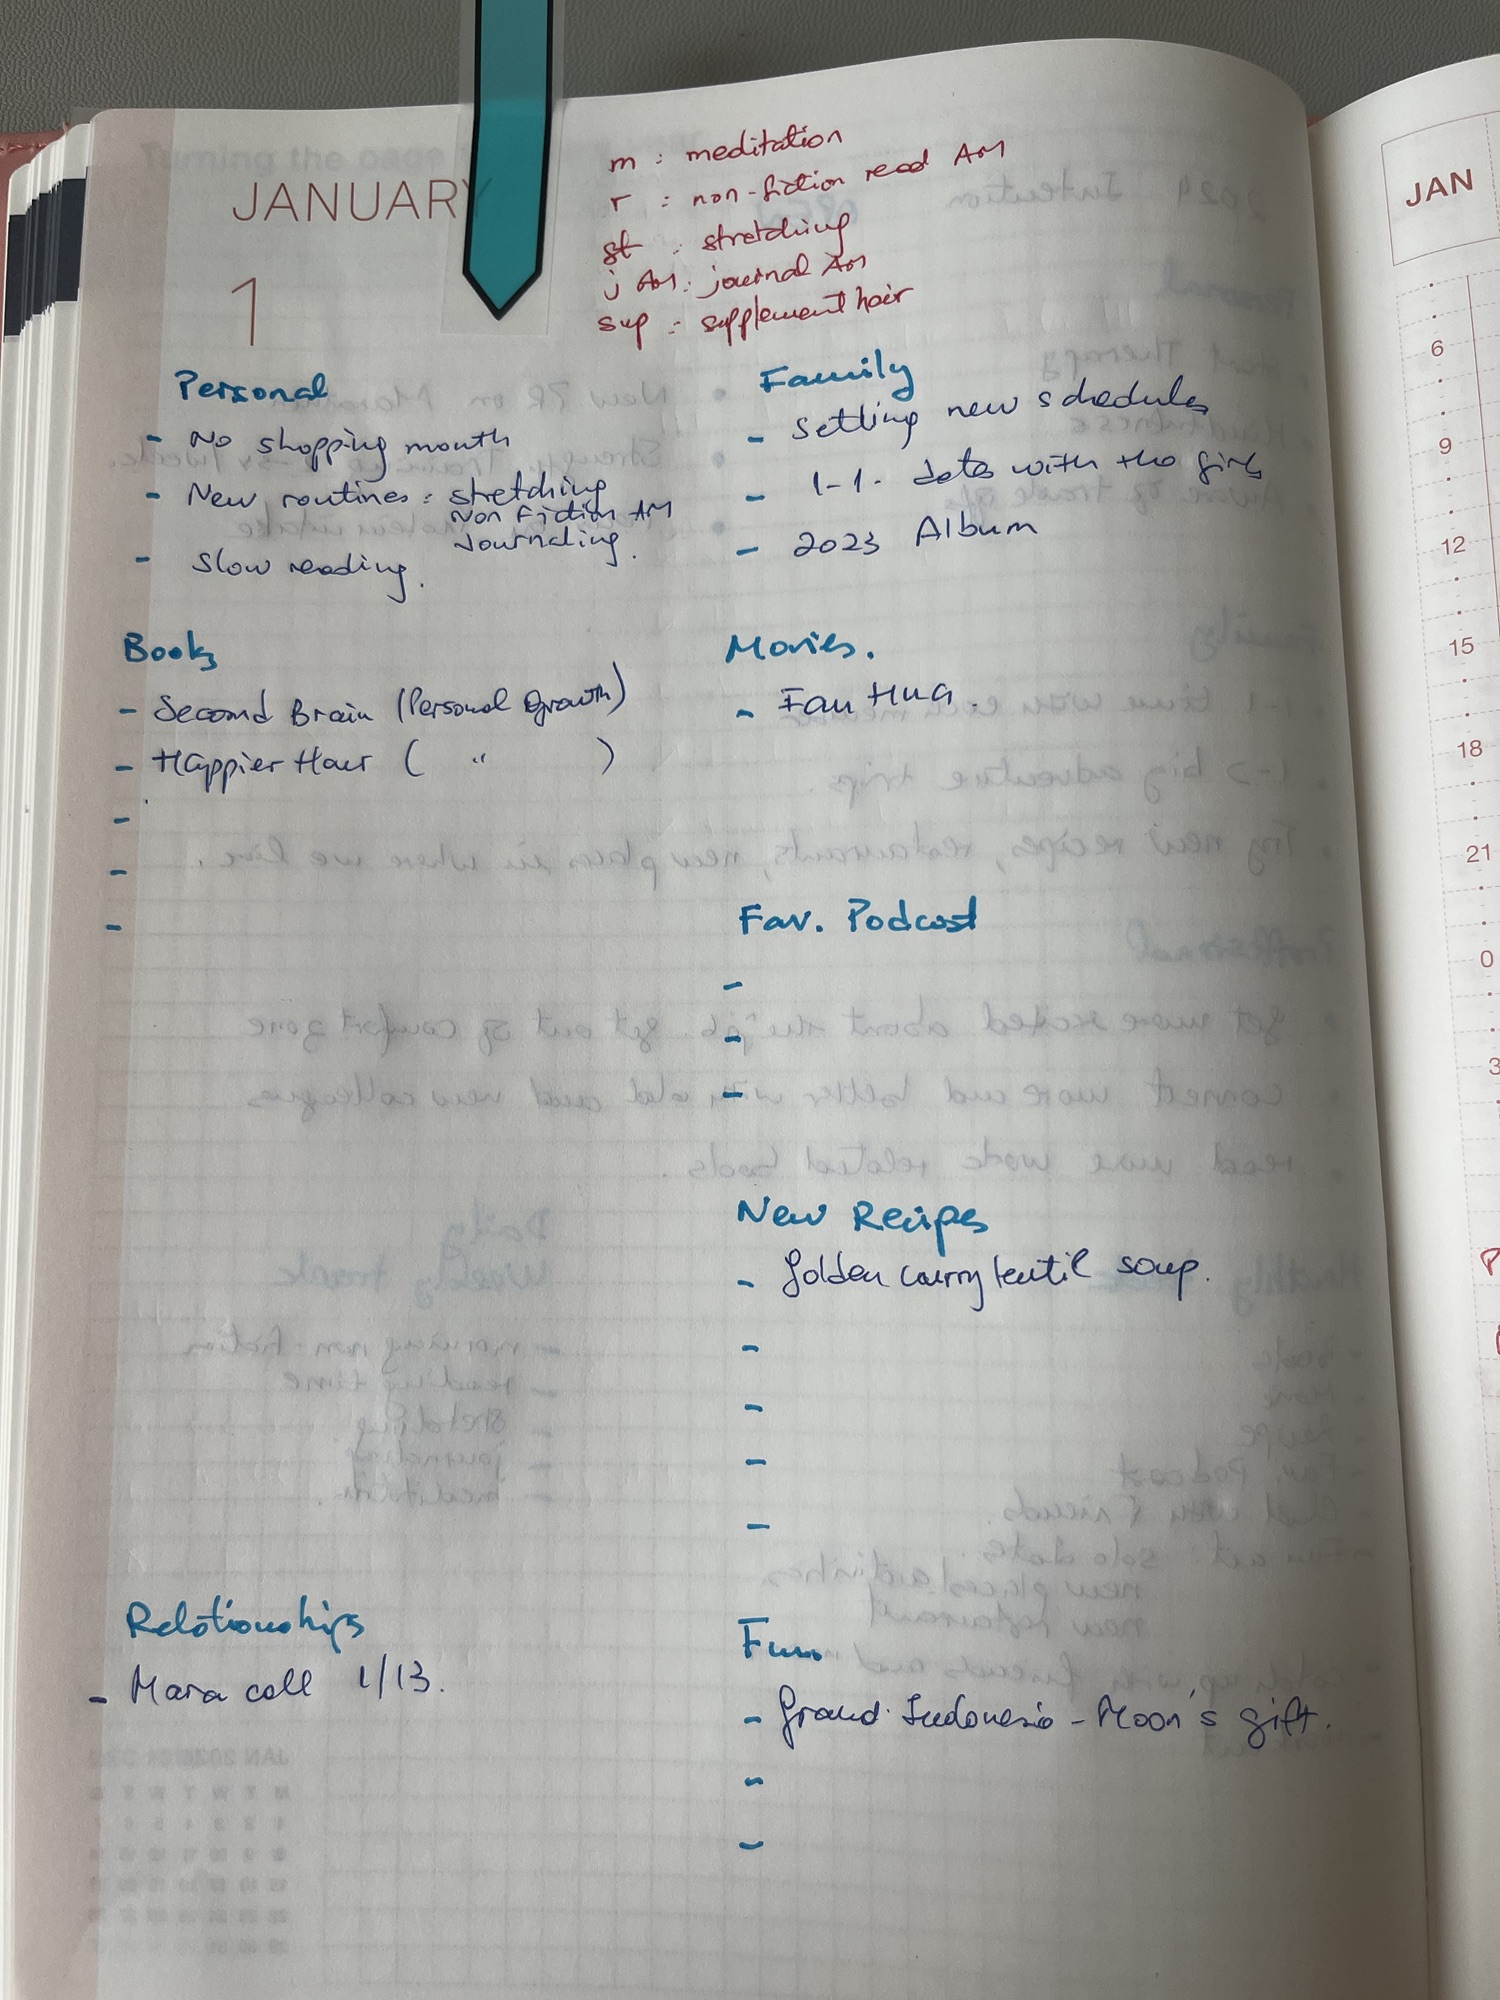 JANUARY
1
m : meditation
r : non-fiction read AM
st : stretching
j AM : journal AM
sup : supplement hair
Personal
- No shopping month
- New routines : stretching
Non Fiction AM
Journaling.
- Slow reading.
Family
- Settling new schedules
- 1-1. dates with the girls
- 2023 Album
Books
- Second Brain (Personal Growth)
- Happier Hour ( " )
-
-
-
Movies.
-
Fav. Podcast
-
-
-
New Recipes
- Golden curry lentil soup.
-
-
-
-
Relationships
- Mara call 1/13.
Fun
- Grand Indonesia - Moon's gift.
-
-
JAN
6
9
12
15
18
21
0
3